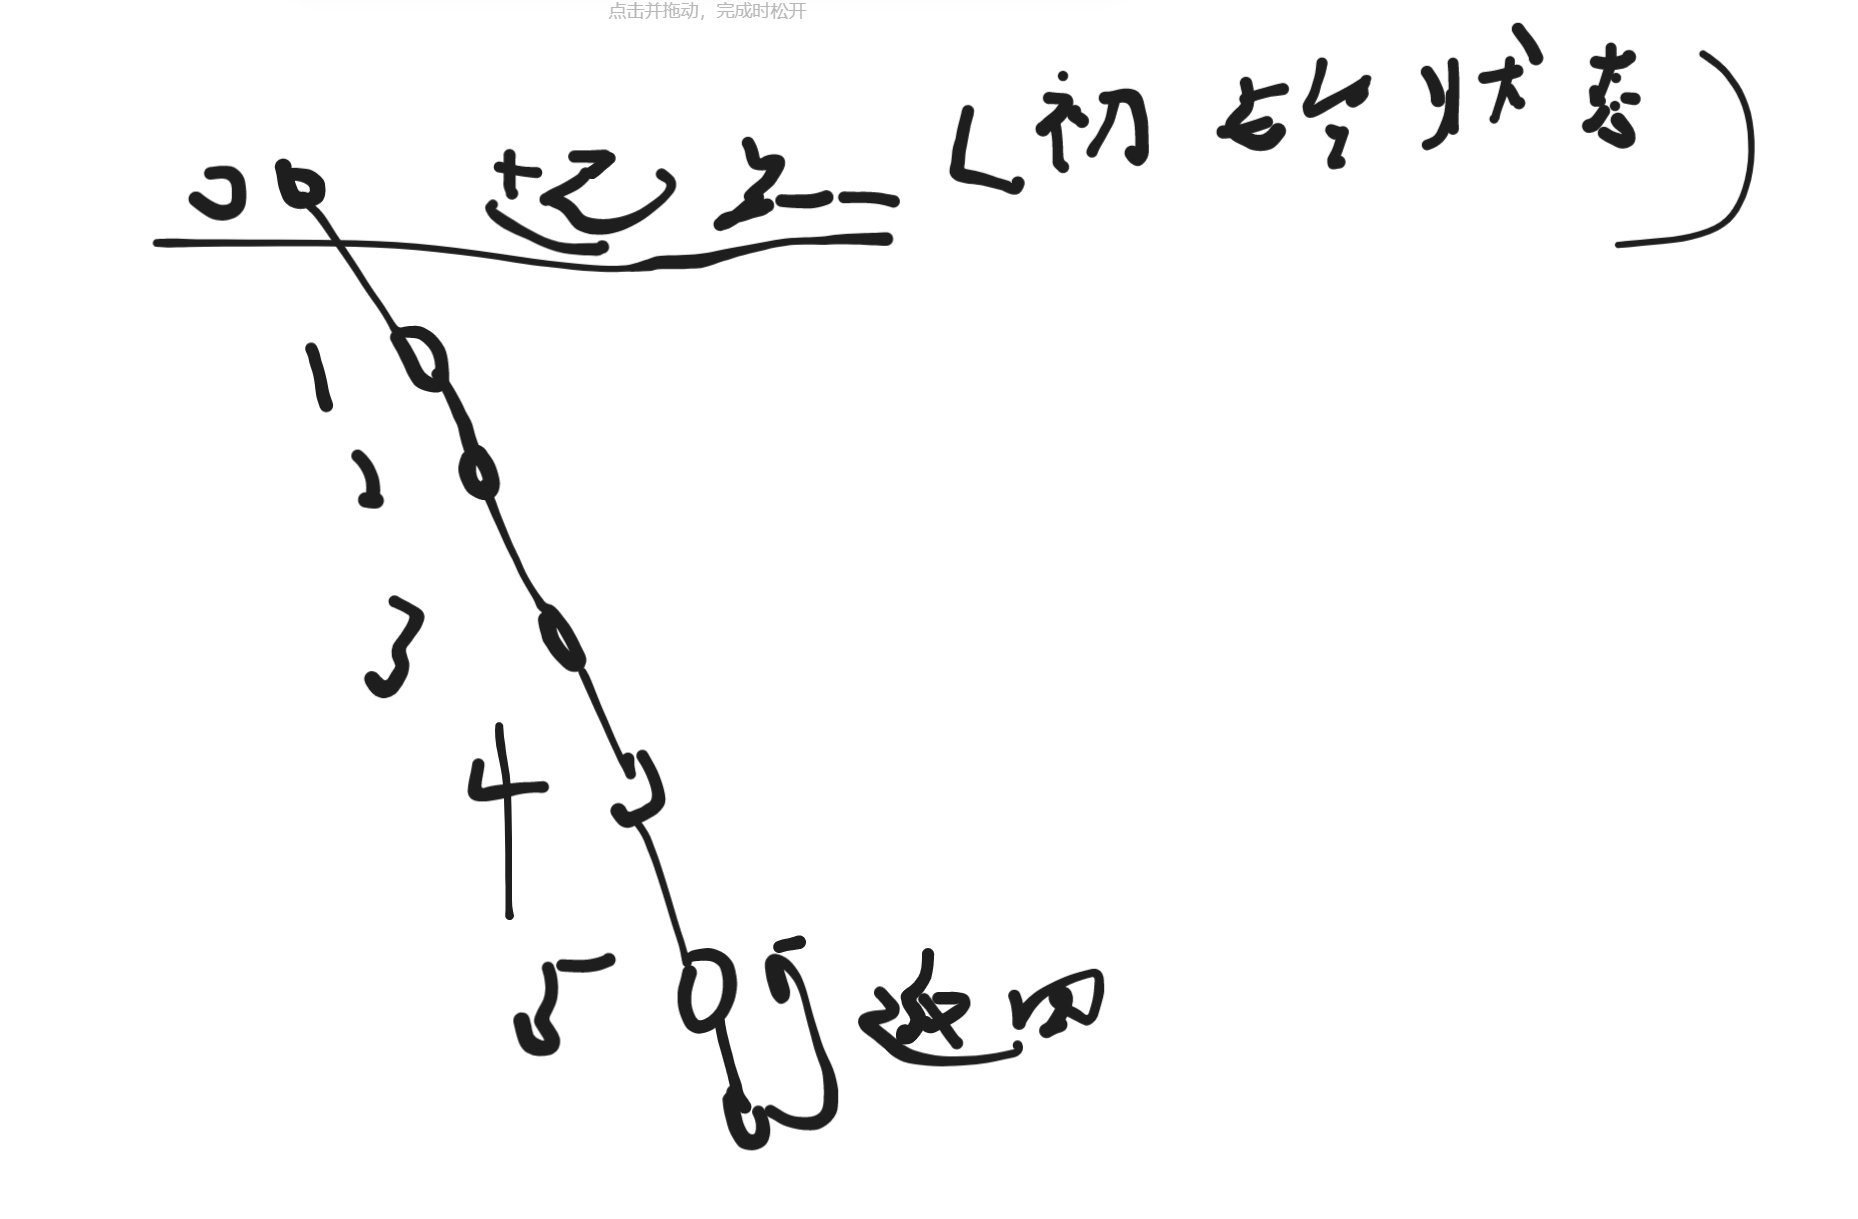 点击并拖动，完成时松开
(初始状态)
1
2
3
4
5
返回